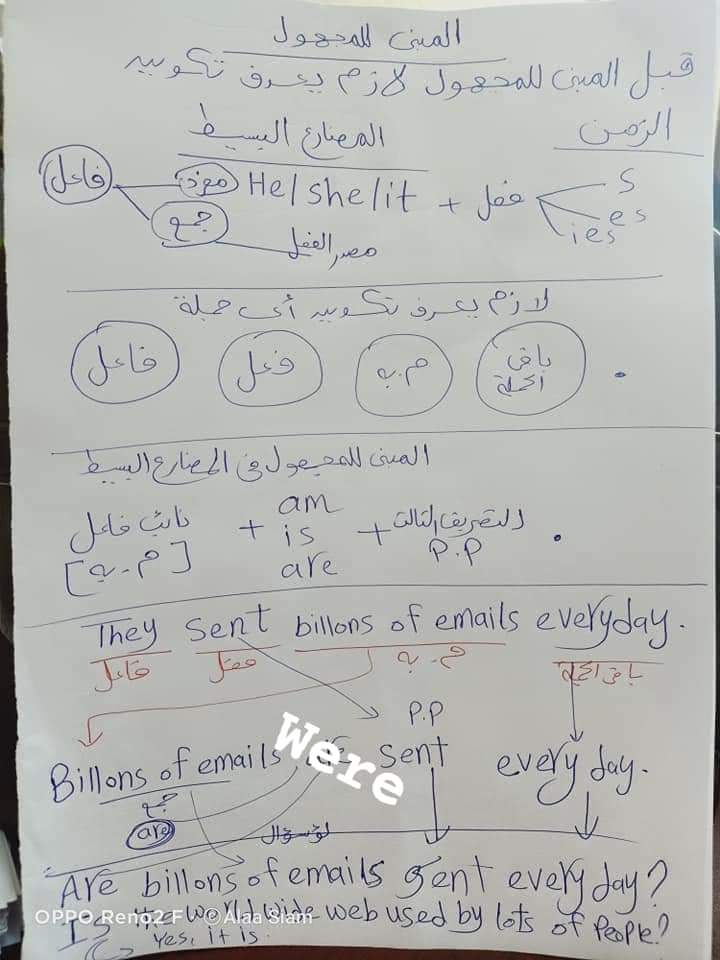 المبنى للمجهول
قبل المبنى للمجهول لازم يعرف تكوين
الزمن المضارع البسيط
فاعل مفرد He/she/it + فعل s
es
ies
جمع مصدر الفعل
لازم يعرف تكوين أى جملة
فاعل فعل م.به باقى الجملة .
المبنى للمجهول فى المضارع البسيط
نائب فاعل + am is are + التصريف الثالث .
[م.به] P.P
They sent billons of emails everyday.
فاعل فعل م.به باقى الجملة
P.P
Billons of emails Were sent every day.
جمع
are
لو سؤال
Are billons of emails sent every day?
Is the world wide web used by lots of People?
Yes, it is.
OPPO Reno2 F ©Alaa Siam